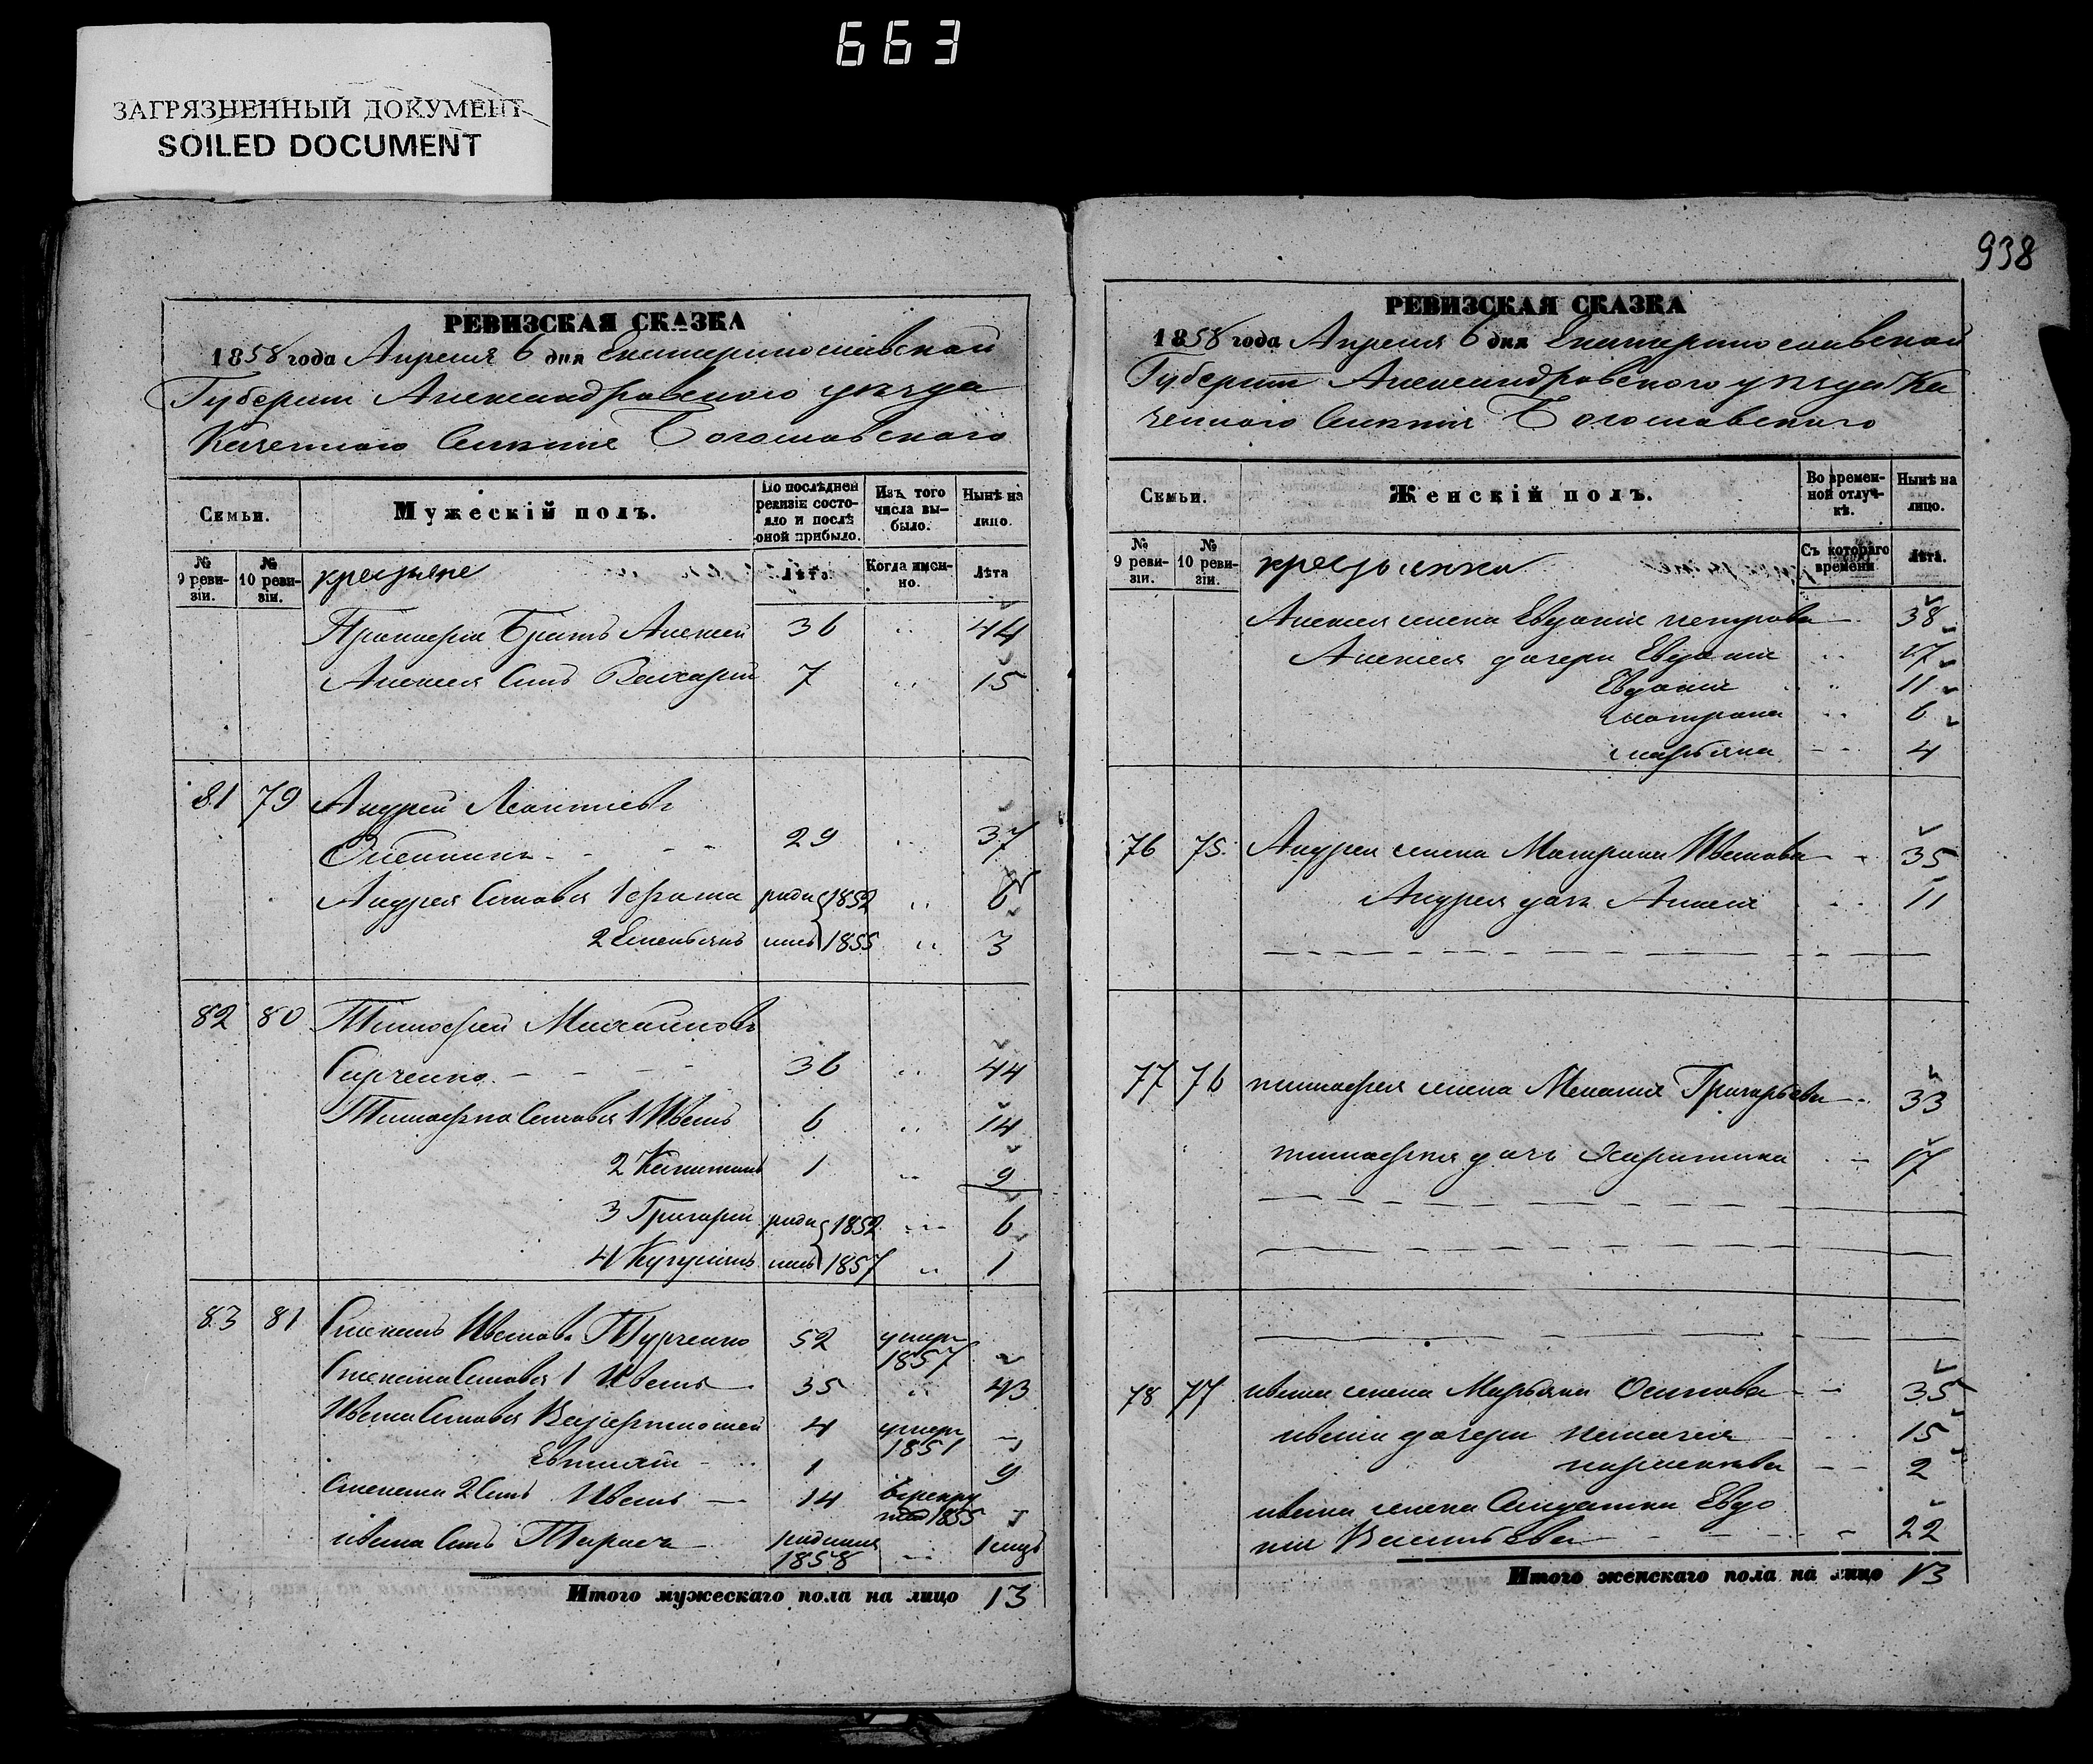 663
ЗАГРЯЗНЕННЫЙ ДОКУМЕНТ
SOILED DOCUMENT
РЕВИЗСКАЯ СКАЗКА
1858 года Апреля 6 дня Екатеринославской
Губернии Александровского уезда
Казенного Селения Богословского
Семьи.
Мужескій полъ.
По послѣдней ревизіи состояло и послѣ оной прибыло.
Изъ того числа выбыло.
Нынѣ на лицо.
№ 9 ревизіи.
№ 10 ревизіи.
крестьяне
Лѣта
Когда именно.
Лѣта
Братъ Алексей 36 44
Алексея Сынъ Захарий 7 15
81 79 Андрей Леонтиевъ
29 37
Андрея Сыновья 1 роди 1852 6
2 Емельянъ лись 1855 3
82 80 Тимофей Михайловъ
36 44
Тимофея Сыновья 1 Иванъ 6 14
2 Капитонъ 1 9
3 Григорий роди 1852 6
4 лись 1857 1
83 81 Степанъ Ивановъ Турченко 52 умеръ 1857
Степана Сыновья 1 Иванъ 35 43
Ивана Сыновья 4 умеръ 1851
1 9
Степана 2 Сынъ Иванъ 14 в рекруты 1855
ивана Сынъ Тарасъ родился 1858
Итого мужескаго пола на лицо 13
938
РЕВИЗСКАЯ СКАЗКА
1858 года Апреля 6 дня Екатеринославской
Губернии Александровского уезда Ка
зенного Селения Богословского
Семьи.
Женскій полъ.
Во временной отлучкѣ.
Нынѣ на лицо.
№ 9 ревизіи.
№ 10 ревизіи.
крестьянки
Съ котораго времени
Лѣта.
Алексея жена Евдокия петрова 38
Алексея дочери Евдокия 17
Евдокия 11
матрона 6
марьяна 4
76 75 Андрея жена Матрона Иванова 35
Андрея дочь 11
77 76 тимофея жена Мелания Григорьева 33
тимофея дочь Харитина 17
78 77 ивана жена Марьяна Осипова 35
ивана дочери пелагия 15
парасковия 2
ивана жена Солдатка Евдо
кия Васильева 22
Итого женскаго пола на лицо 13